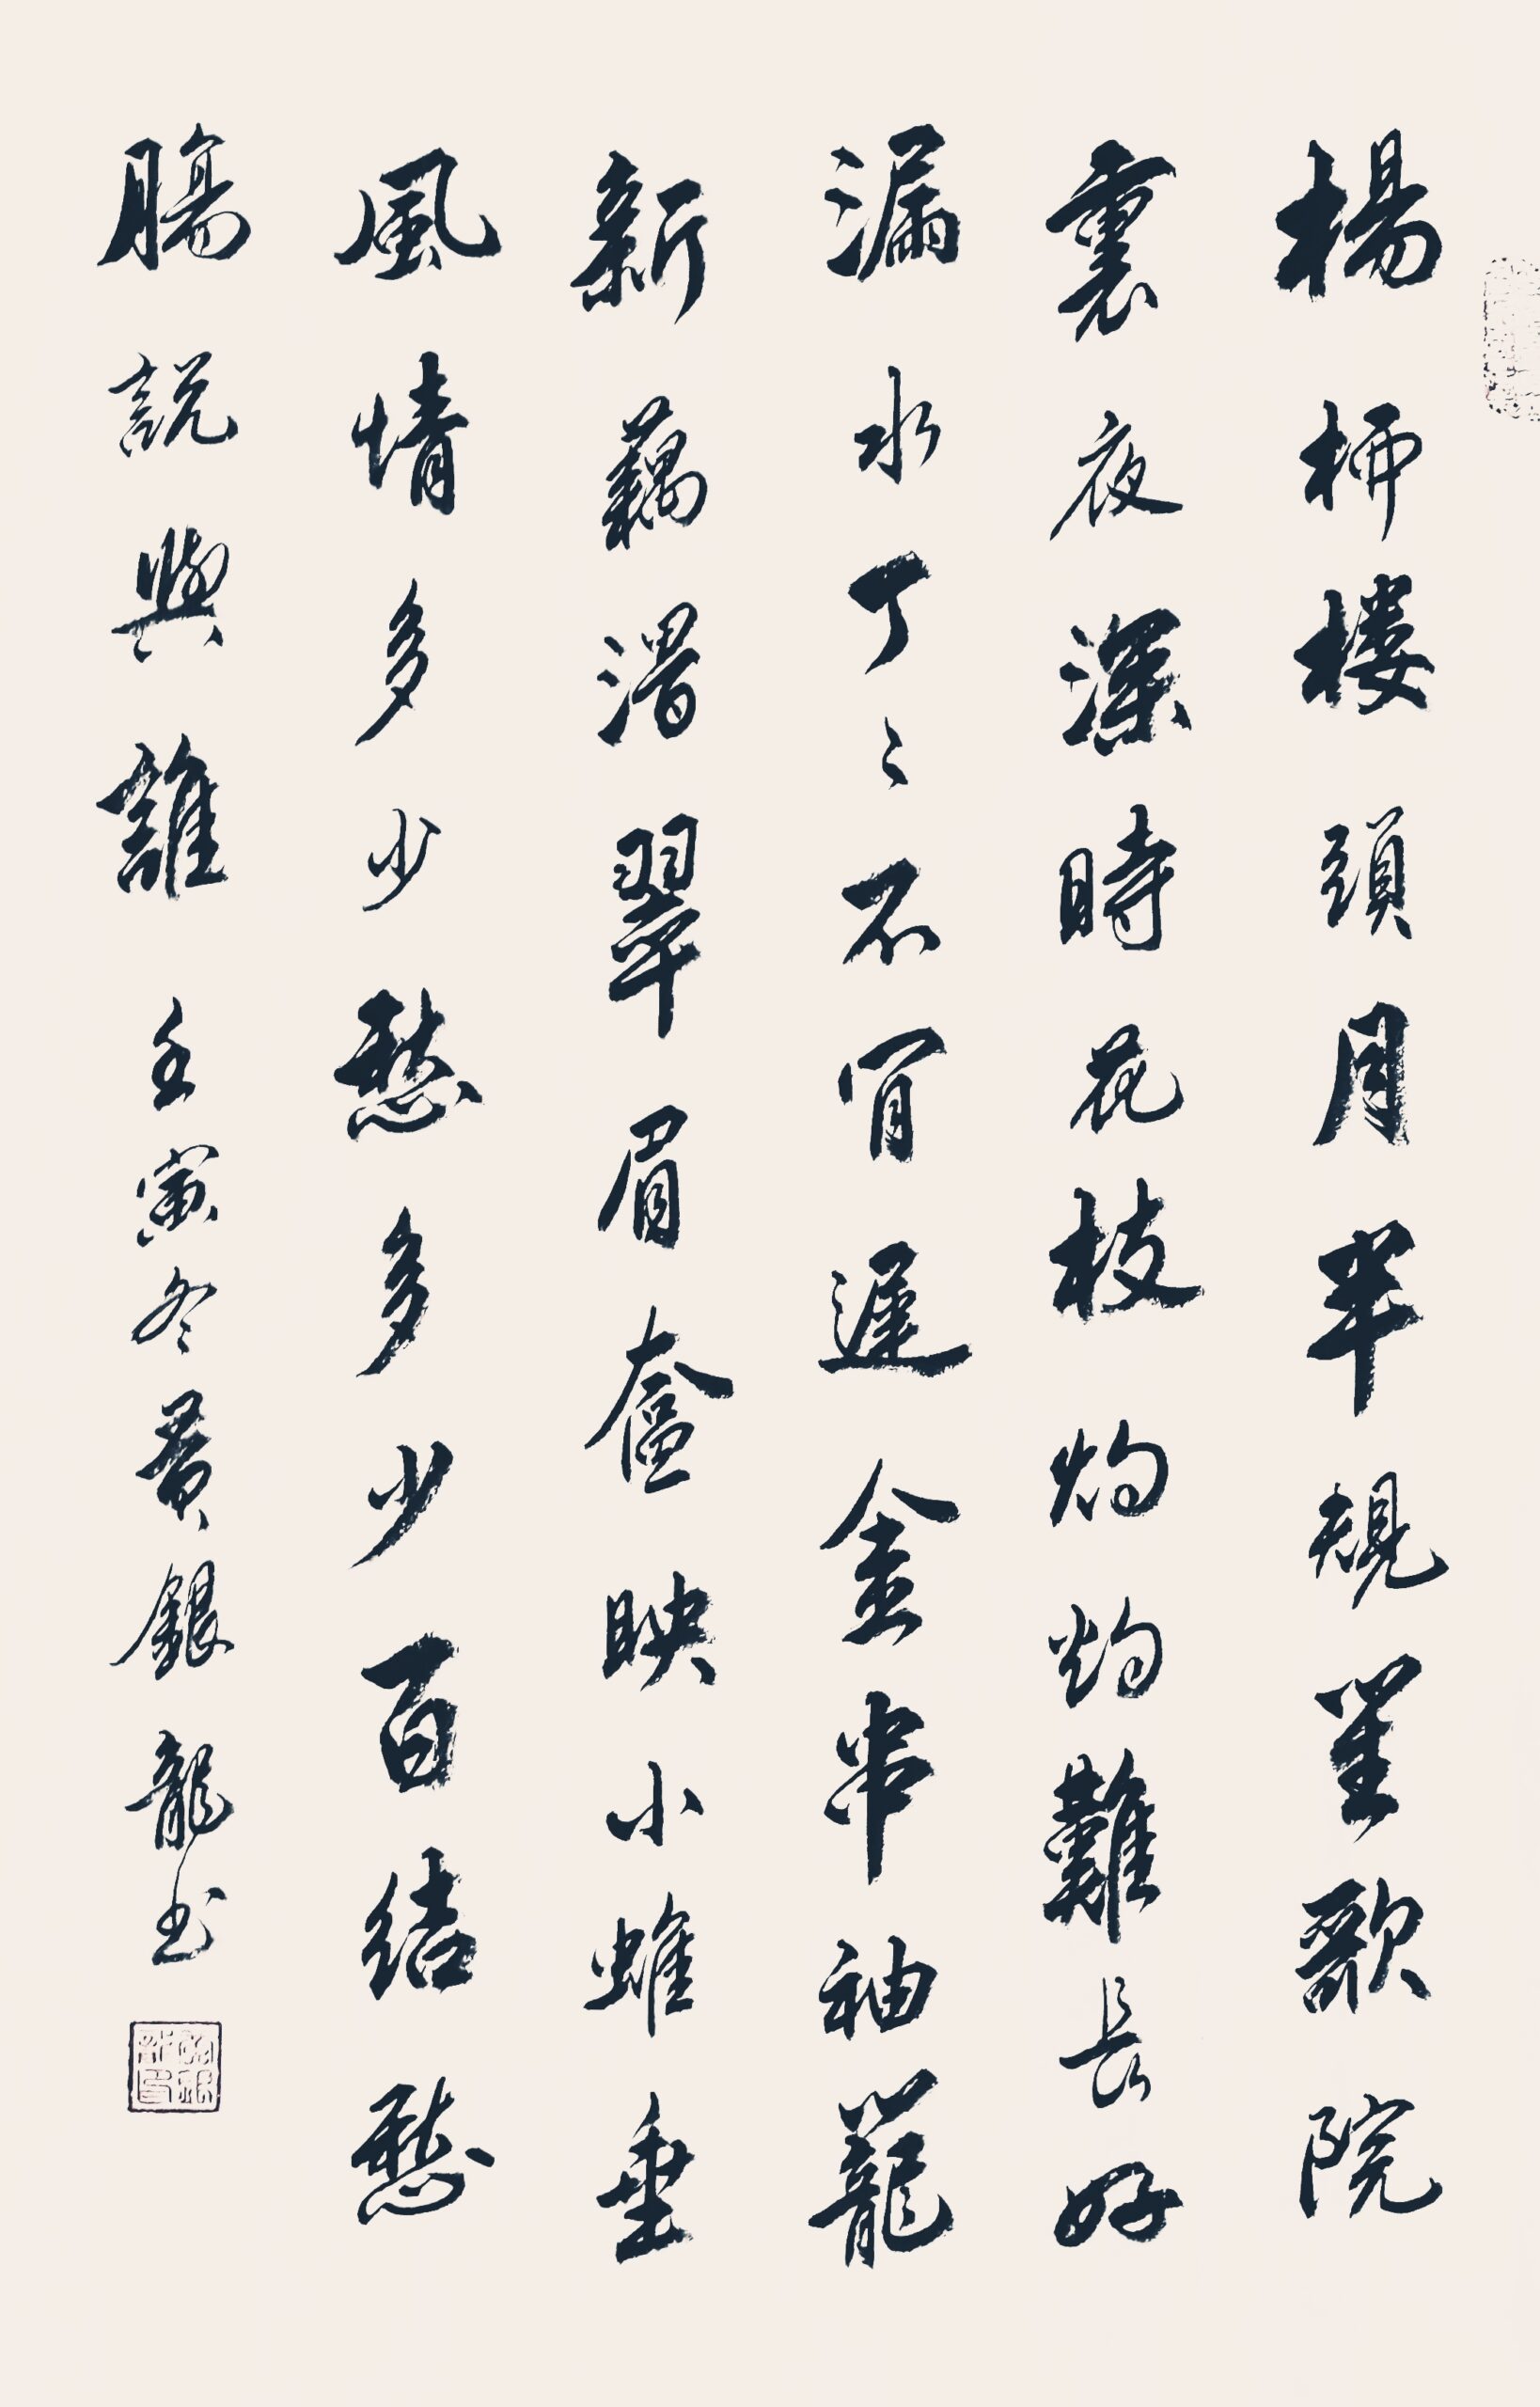 楊柳樓頭月半規笙歌院
裏夜深時花枝灼灼難長好
漏水丁々不肯遲金串袖籠
新藕滑翠眉奩映小蜼垂
風情多少愁多少百結愁
腸說與誰 壬寅冬黃銀龍书